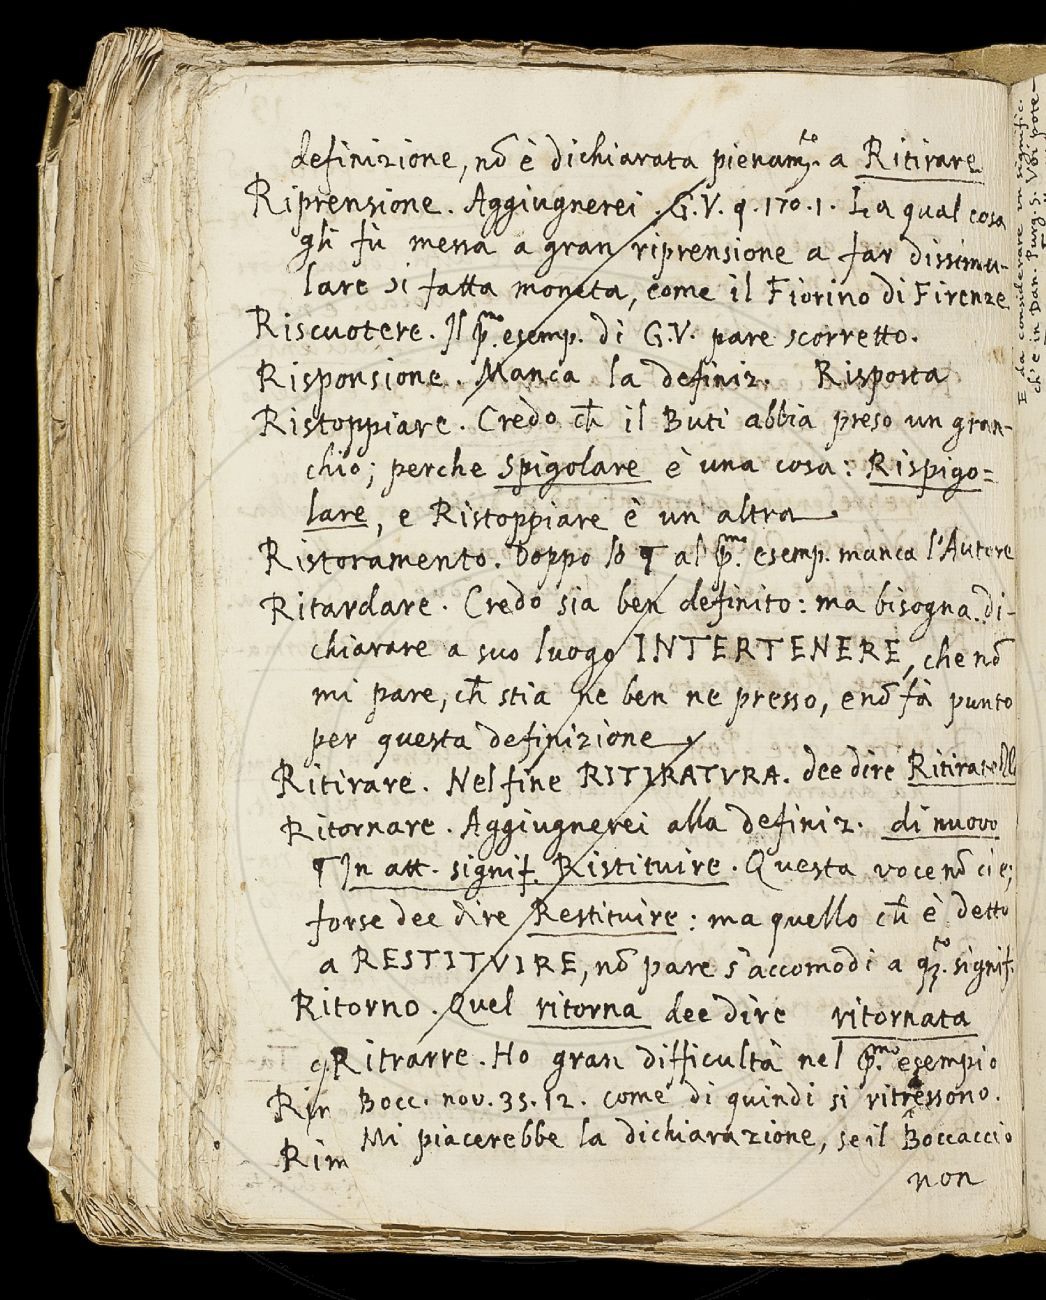 definizione, nō è dichiarata pienamᵗᵒ. a Ritirare
Riprensione. Aggiugnerei. G.V. 9.170.1. La qual cosa
gli fù messa a gran riprensione a far dissimu-
lare si fatta moneta, come il Fiorino di Firenze
Riscuotere. Il pᵐᵒ. esemp. di G.V. pare scorretto.
Risponsione. Manca la definiz. Risposta
Ristoppiare. Credo ch̄ il Buti abbia preso un gran-
chio; perche Spigolare è una cosa: Rispigo=
lare, e Ristoppiare è un altra.
Ristoramento. Doppo lo ¶ al pᵐᵒ. esemp. manca l'Autore
Ritardare. Credo sia ben definito: ma bisogna di-
chiarare a suo luogo INTERTENERE, che nō
mi pare, ch̄ stia ne ben ne presso, e nō fà punto
per questa definizione
Ritirare. Nel fine RITIRATVRA. dee dire
Ritornare. Aggiugnerei alla definiz. di nuovo
¶ In att. signif. Ristituire. Questa voce nō ci e;
forse dee dire Restituire: ma quello ch̄ è detto
a RESTITVIRE, nō pare s'accomodi a qᵗᵒ. signif.
Ritorno. Quel ritorna dee dire ritornata
Ritrarre. Ho gran difficultà nel pᵐᵒ. esempio
Rin Bocc. nov. 35.12. come di quindi si ritressono.
Mi piacerebbe la dichiarazione, se il Boccaccio
Rim
non
E da considerare in signific.
ch'e in Dan. Purg. 5. Voi